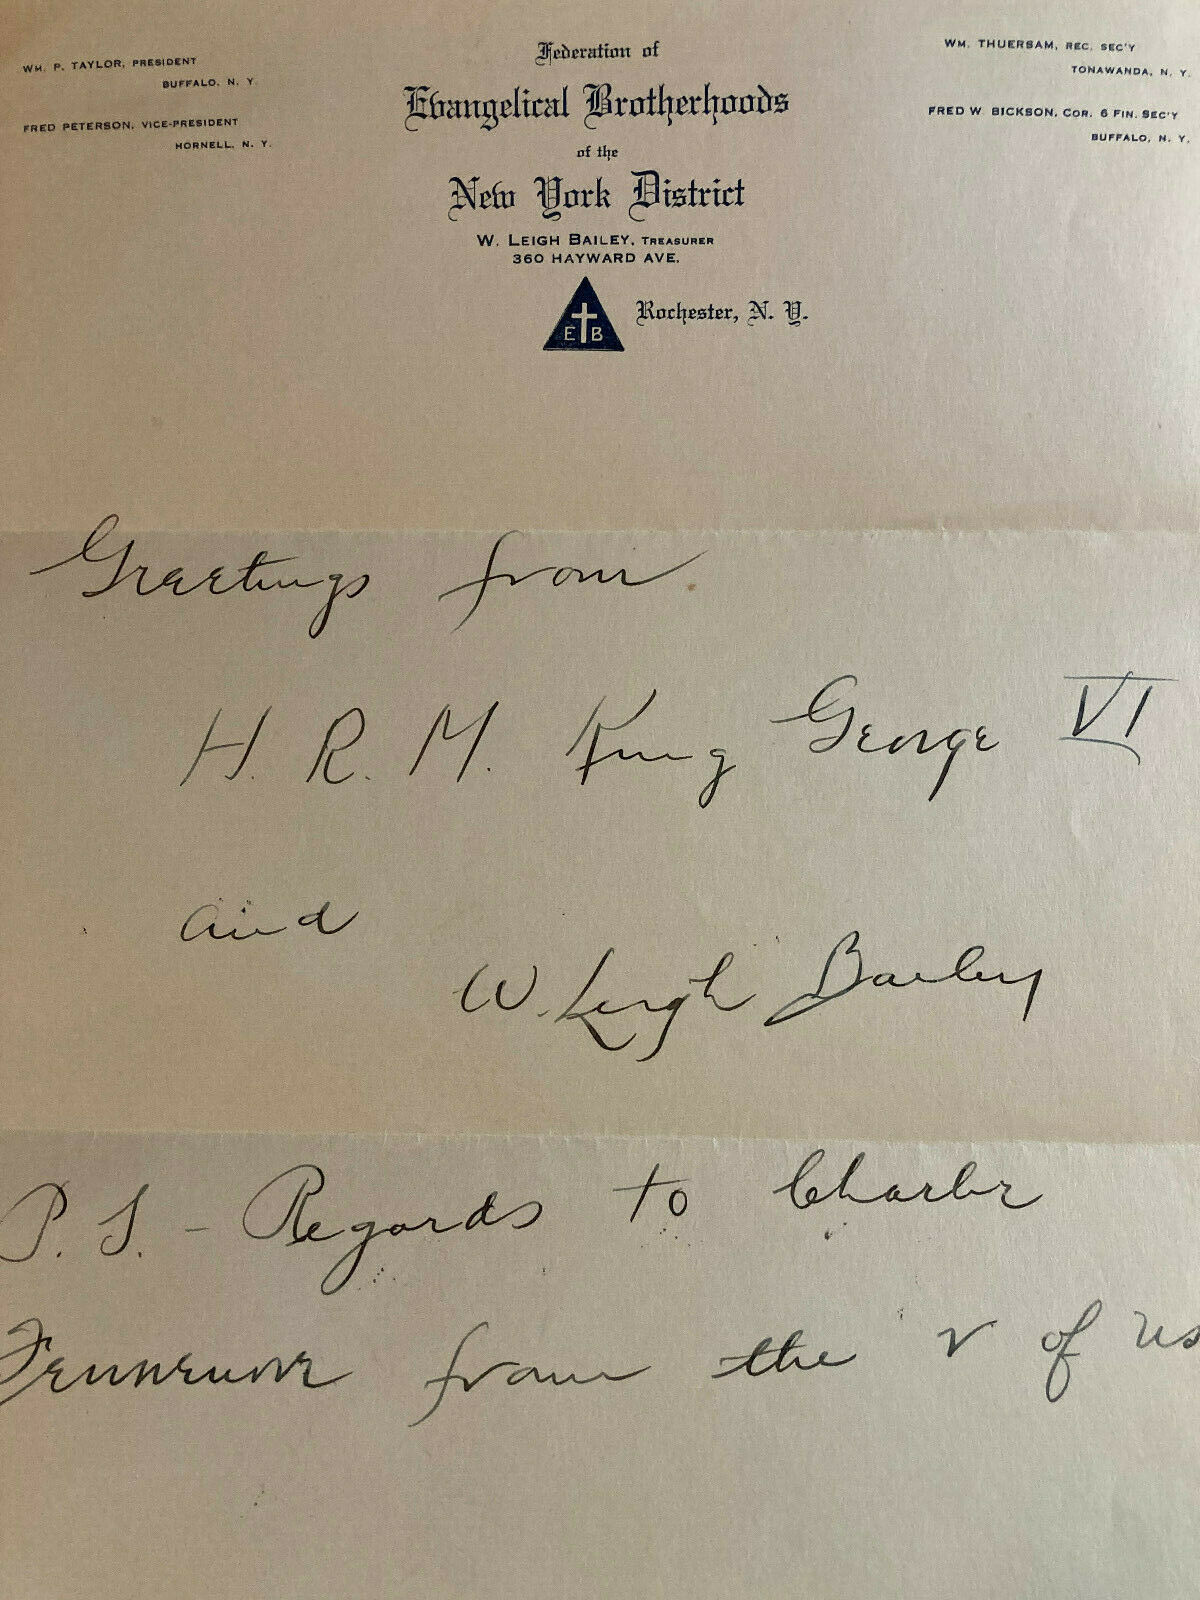 WM. P. TAYLOR, PRESIDENT
BUFFALO, N. Y.
FRED PETERSON, VICE-PRESIDENT
HORNELL, N. Y.
Federation of
Evangelical Brotherhoods
of the
New York District
W. LEIGH BAILEY, TREASURER
360 HAYWARD AVE.
E B
Rochester, N. Y.
WM. THUERSAM, REC. SEC'Y
TONAWANDA, N. Y.
FRED W. BICKSON, COR. 6 FIN. SEC'Y
BUFFALO, N. Y.
Greetings from
H. R. M. King George VI
and
W. Leigh Bailey
P. S. - Regards to
from the v of us